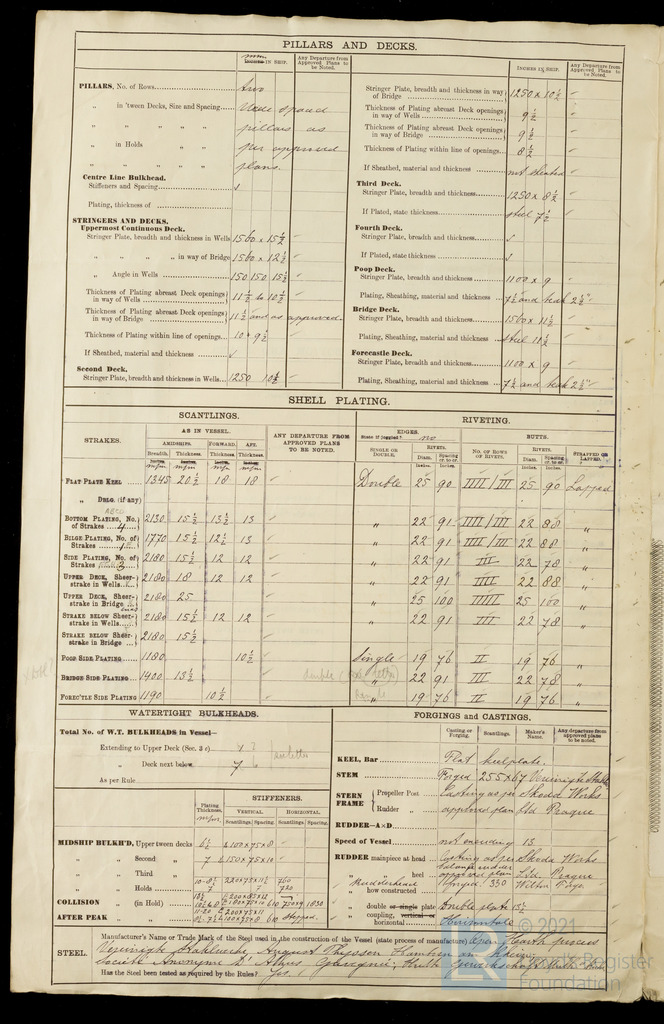 PILLARS AND DECKS.
m/m
Inches IN SHIP.
Any Departure from Approved Plans to be Noted.
PILLARS, No. of Rows
two
„ in 'tween Decks, Size and Spacing
Wide spaced
„ „ „ „
pillars as
„ in Holds „ „
per approved
„ „ „ „
plans.
Centre Line Bulkhead.
Stiffeners and Spacing
Plating, thickness of
STRINGERS AND DECKS.
Uppermost Continuous Deck.
Stringer Plate, breadth and thickness in Wells 1560 x 15½
„ „ „ „ in way of Bridge 1560 x 12½
„ Angle in Wells 150 150 15½
Thickness of Plating abreast Deck openings in way of Wells 11½ to 10½
Thickness of Plating abreast Deck openings in way of Bridge 11½ and as approved
Thickness of Plating within line of openings 10 & 9½
If Sheathed, material and thickness
Second Deck.
Stringer Plate, breadth and thickness in Wells 1250 10½
INCHES IN SHIP.
Any Departure from Approved Plans to be Noted.
Stringer Plate, breadth and thickness in way of Bridge 1250 x 10½
Thickness of Plating abreast Deck openings in way of Wells 9½
Thickness of Plating abreast Deck openings in way of Bridge 9½
Thickness of Plating within line of openings 8½
If Sheathed, material and thickness not sheated
Third Deck.
Stringer Plate, breadth and thickness 1250 x 8½
If Plated, state thickness steel 7½
Fourth Deck.
Stringer Plate, breadth and thickness
If Plated, state thickness
Poop Deck.
Stringer Plate, breadth and thickness 1100 x 9
Plating, Sheathing, material and thickness 7½ and teak 2½"
Bridge Deck.
Stringer Plate, breadth and thickness 1560 x 11½
Plating, Sheathing, material and thickness steel 11½
Forecastle Deck.
Stringer Plate, breadth and thickness 1100 x 9
Plating, Sheathing, material and thickness 7½ and teak 2½"
SHELL PLATING.
SCANTLINGS.
RIVETING.
STRAKES.
AS IN VESSEL.
ANY DEPARTURE FROM APPROVED PLANS TO BE NOTED.
EDGES.
State if joggled? no
BUTTS.
AMIDSHIPS. FORWARD. AFT.
Breadth. Thickness. Thickness. Thickness.
SINGLE OR DOUBLE.
RIVETS.
Diam. Spacing cr. to cr.
NO. OF ROWS OF RIVETS.
RIVETS.
Diam. Spacing cr. to cr.
STRAPPED OR LAPPED.
FLAT PLATE KEEL 1345 20½ 18 18 Double 25 90 IIII/III 25 90 Lapped
„ DBLG. (if any)
BOTTOM PLATING, No. of Strakes 4 2130 15½ 13½ 13 „ 22 91 IIII/III 22 88 „
BILGE PLATING, No. of Strakes 1 1770 15½ 12½ 13 „ 22 91 IIII/III 22 88 „
SIDE PLATING, No. of Strakes 3 2180 15½ 12 12 „ 22 91 III 22 78 „
UPPER DECK, Sheerstrake in Wells 2180 18 12 12 „ 22 91 IIII 22 88 „
UPPER DECK, Sheerstrake in Bridge 2180 25 „ 25 100 IIIII 25 100 „
STRAKE BELOW Sheerstrake in Wells 2180 15½ 12 12 „ 22 91 III 22 78 „
STRAKE BELOW Sheerstrake in Bridge 2180 15½
POOP SIDE PLATING 1180 10½ Single 19 76 II 19 76 „
BRIDGE SIDE PLATING 1400 15½ „ 22 91 III 22 78 „
FORE'C'TLE SIDE PLATING 1190 10½ „ 19 76 II 19 76 „
WATERTIGHT BULKHEADS.
Total No. of W.T. BULKHEADS in Vessel—
Extending to Upper Deck (Sec. 3 c)
„ Deck next below 7
As per Rule
Plating Thickness
m/m
STIFFENERS.
VERTICAL HORIZONTAL
Scantlings Spacing Scantlings Spacing
MIDSHIP BULKH'D, Upper tween decks 6½
„ „ Second „ 7
„ „ Third „
„ „ Holds
COLLISION „ (in Hold)
AFTER PEAK „ „
FORGINGS and CASTINGS.
Casting or Forging. Scantlings. Maker's Name. Any departure from approved plans to be noted.
KEEL, Bar Flat keelplate.
STEM Forged 255 x 67
STERN FRAME
Propeller Post Casting as per Skoda Works
Rudder „ approved plan Ltd Prague
RUDDER—A×D
Speed of Vessel not exceeding 13
RUDDER mainpiece at head Casting as per Skoda Works
„ „ heel approved plan Ltd. Prague
Rudderhead
how constructed
„ double or single plate Double plate 15½
„ coupling, vertical or horizontal Horizontal
STEEL.
Manufacturer's Name or Trade Mark of the Steel used in the construction of the Vessel (state process of manufacture) Open Hearth process
August Thyssen
Société Anonyme
Has the Steel been tested as required by the Rules? Yes.
© 2021
Lloyd's Register
Foundation